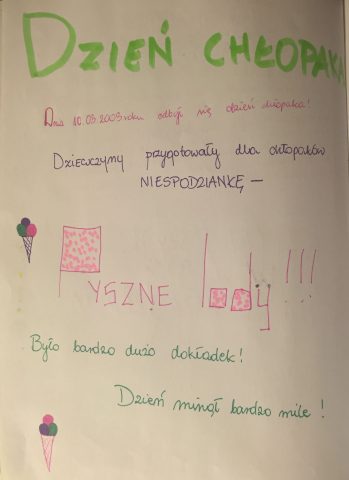 DZIEŃ CHŁOPAKA
Dnia 10.03.2003 roku odbył się dzień chłopaka!
DZIEWCZYNY przygotowały dla chłopaków
NIESPODZIANKĘ —
PYSZNE lody!!!
Było bardzo dużo dokładek!
Dzień minął bardzo mile!